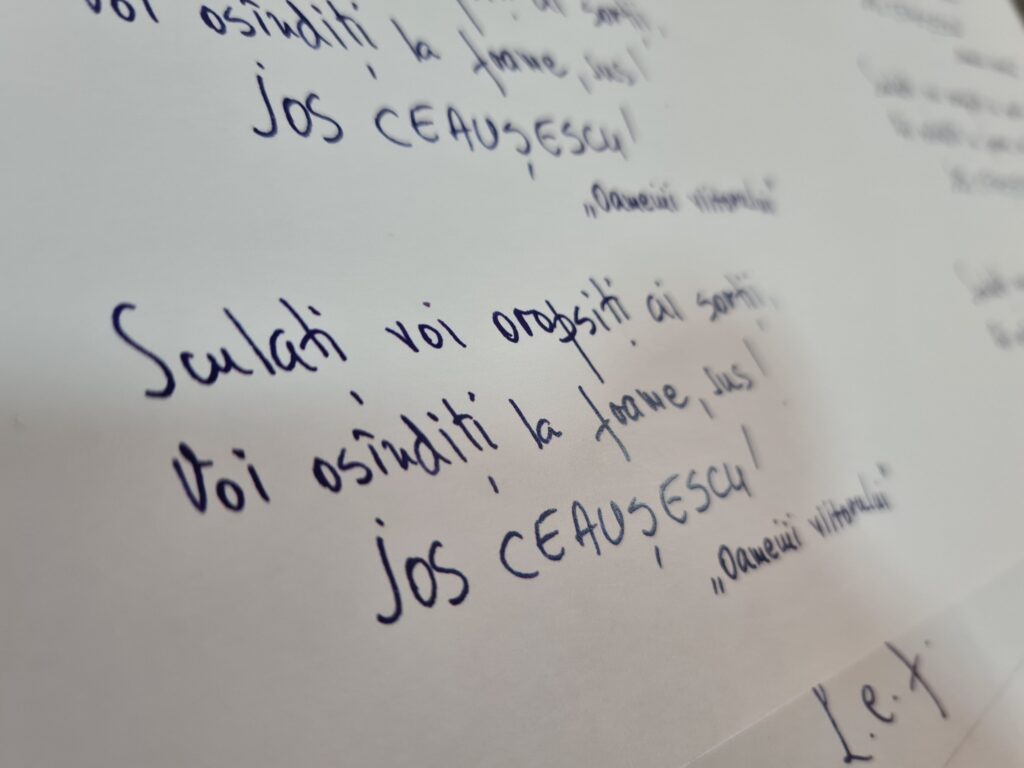 Voi osîndiți la foame, sus!
JOS CEAUȘESCU!
„Oamenii viitorului”
Sculați voi oropsiți ai sorții,
Voi osîndiți la foame, sus!
JOS CEAUȘESCU!
„Oamenii viitorului”